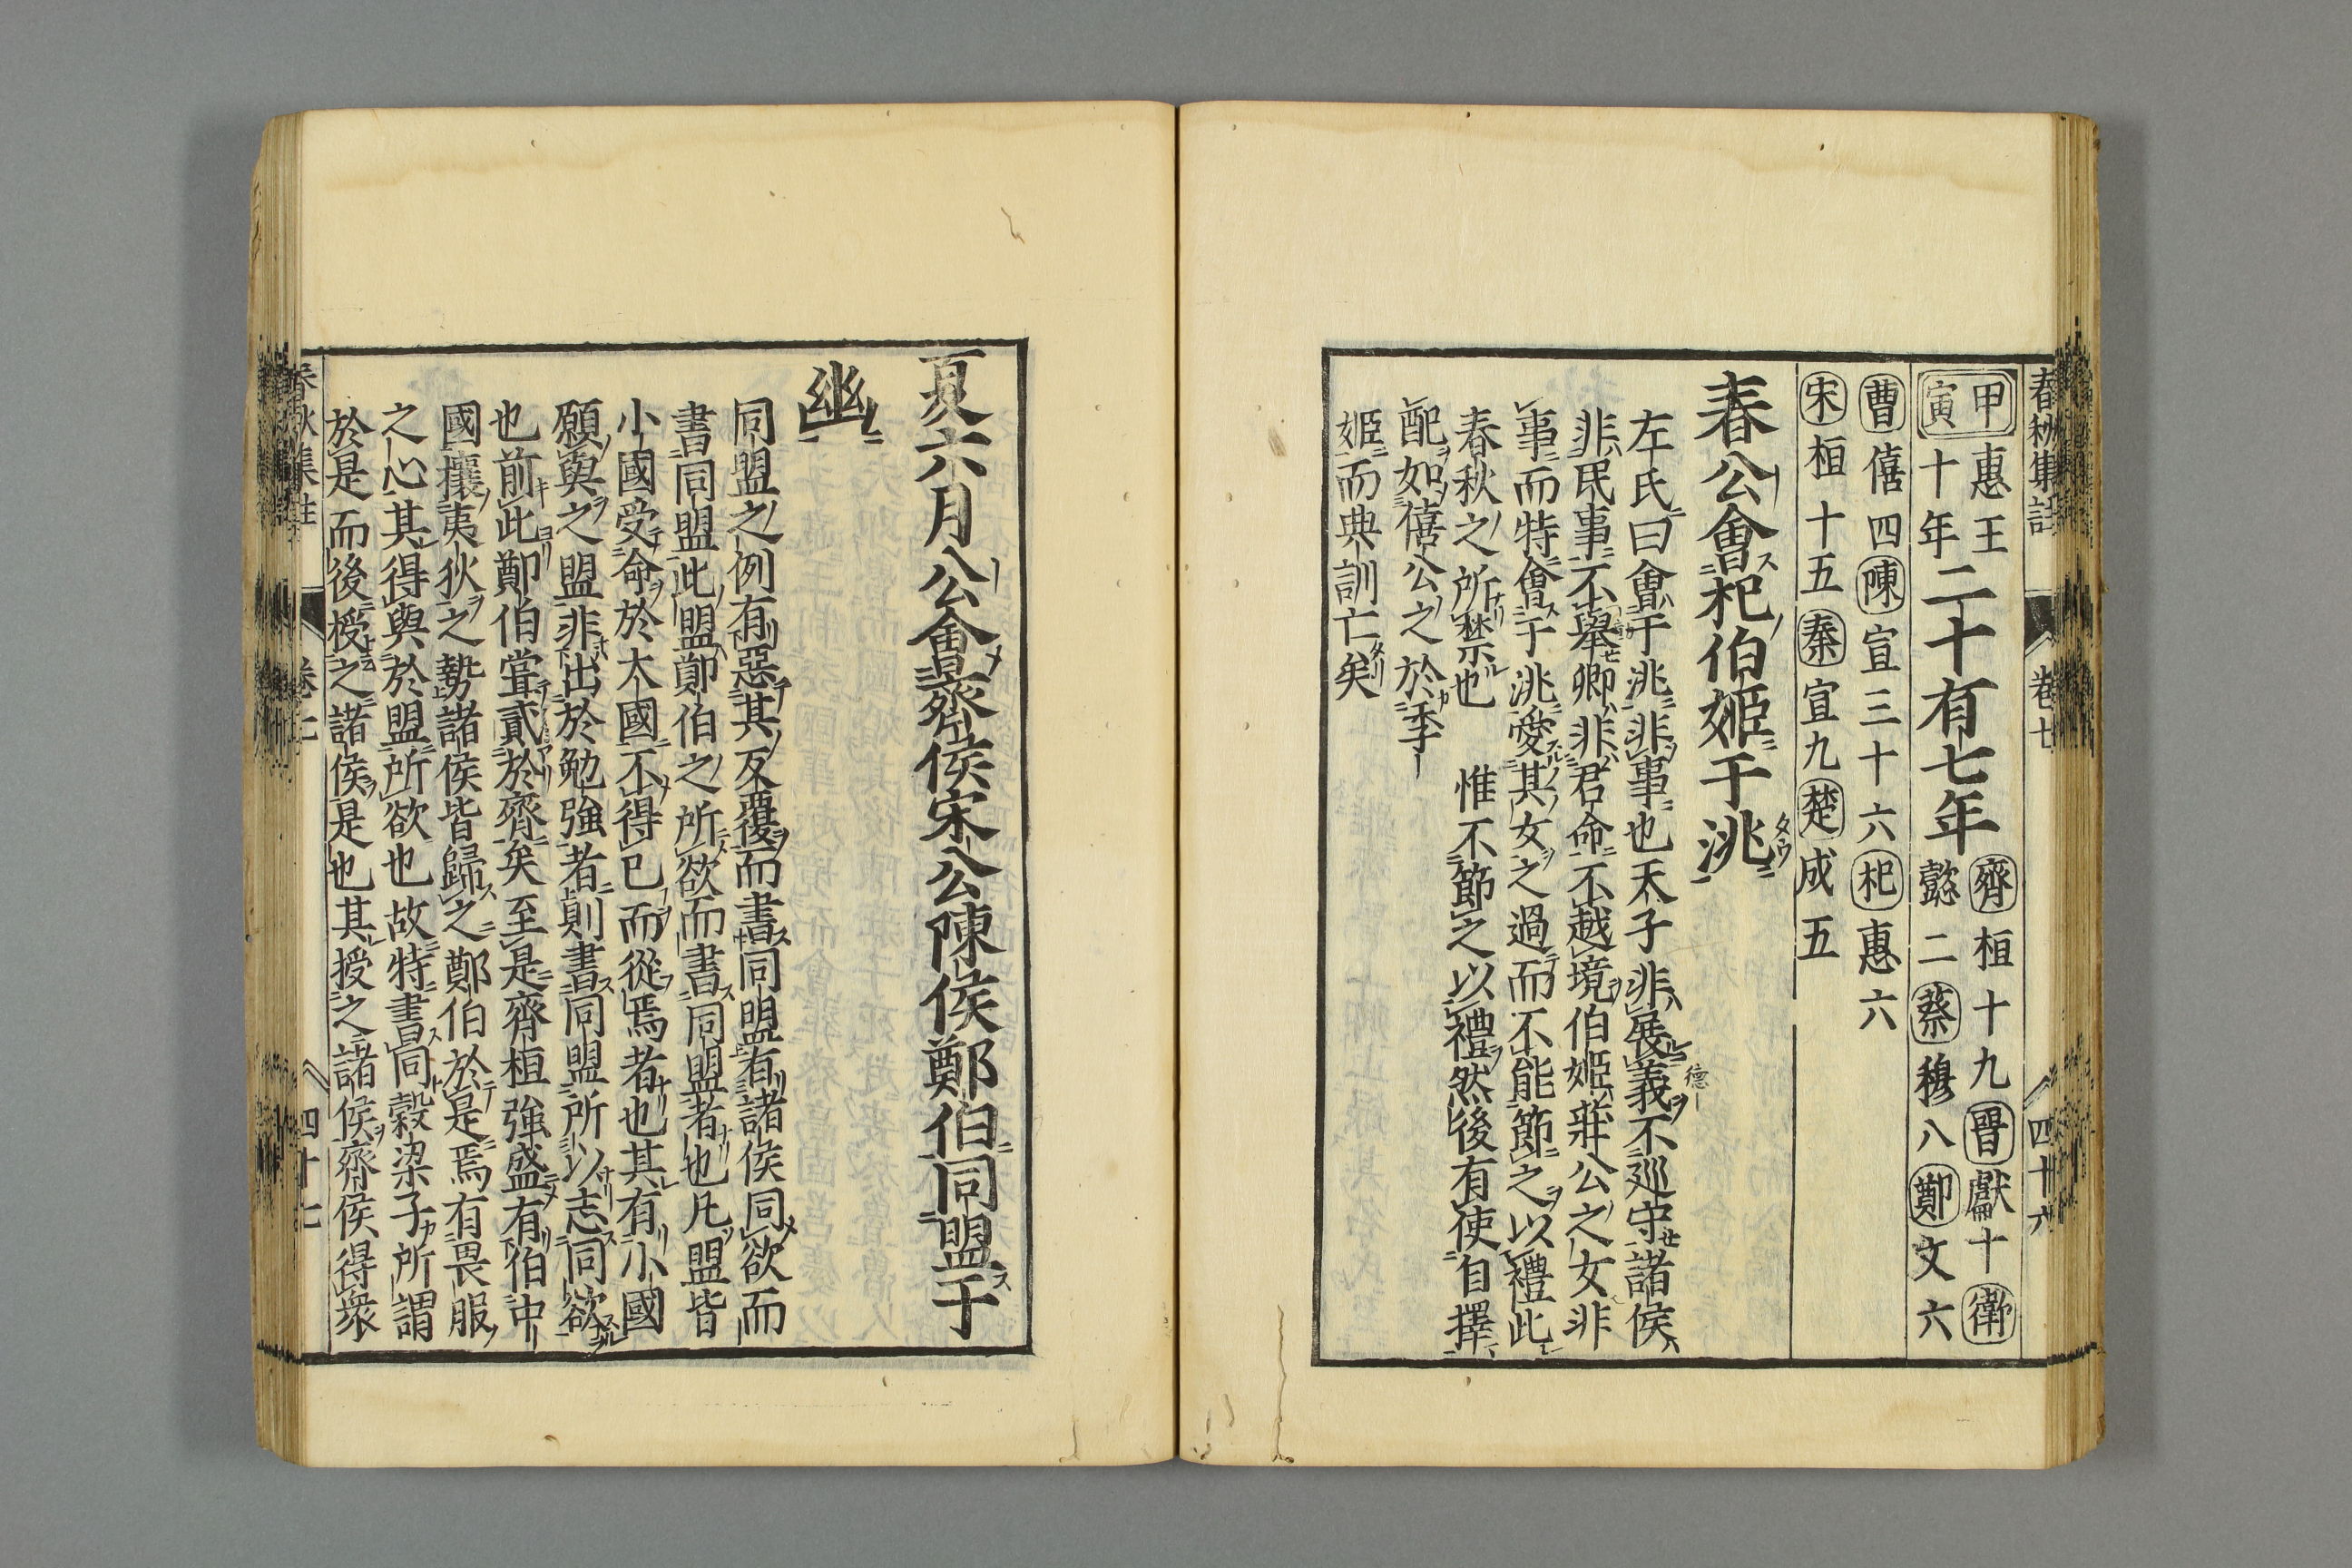 春秋集註 卷七 四十六
甲寅 惠王十年二十有七年 齊桓十九晉獻十衛懿二蔡穆八鄭文六
曹僖四陳宣三十六杞惠六
宋桓十五秦宣九楚成五
春公會杞伯姬于洮
左氏曰會于洮非事也天子非展義不巡守諸侯
非民事不舉卿非君命不越境伯姬莊公之女非
事而特會于洮愛其女之過而不能節之以禮此
春秋之所禁也 惟不節之以禮然後有使自擇
配如僖公之於季
姬而典訓亡矣
夏六月公會齊侯宋公陳侯鄭伯同盟于
幽
同盟之例有惡其反覆而書同盟有諸侯同欲而
書同盟此盟鄭伯之所欲而書同盟者也凡盟皆
小國受命於大國不得已而從焉者也其有小國
願與之盟非出於勉強者則書同盟所以志同欲
也前此鄭伯嘗貳於齊矣至是齊桓強盛有伯中
國攘夷狄之勢諸侯皆歸之鄭伯於是焉有畏服
之心其得與於盟所欲也故特書同穀梁子所謂
於是而後授之諸侯是也其授之諸侯齊侯得衆
春秋集註 卷七 四十七